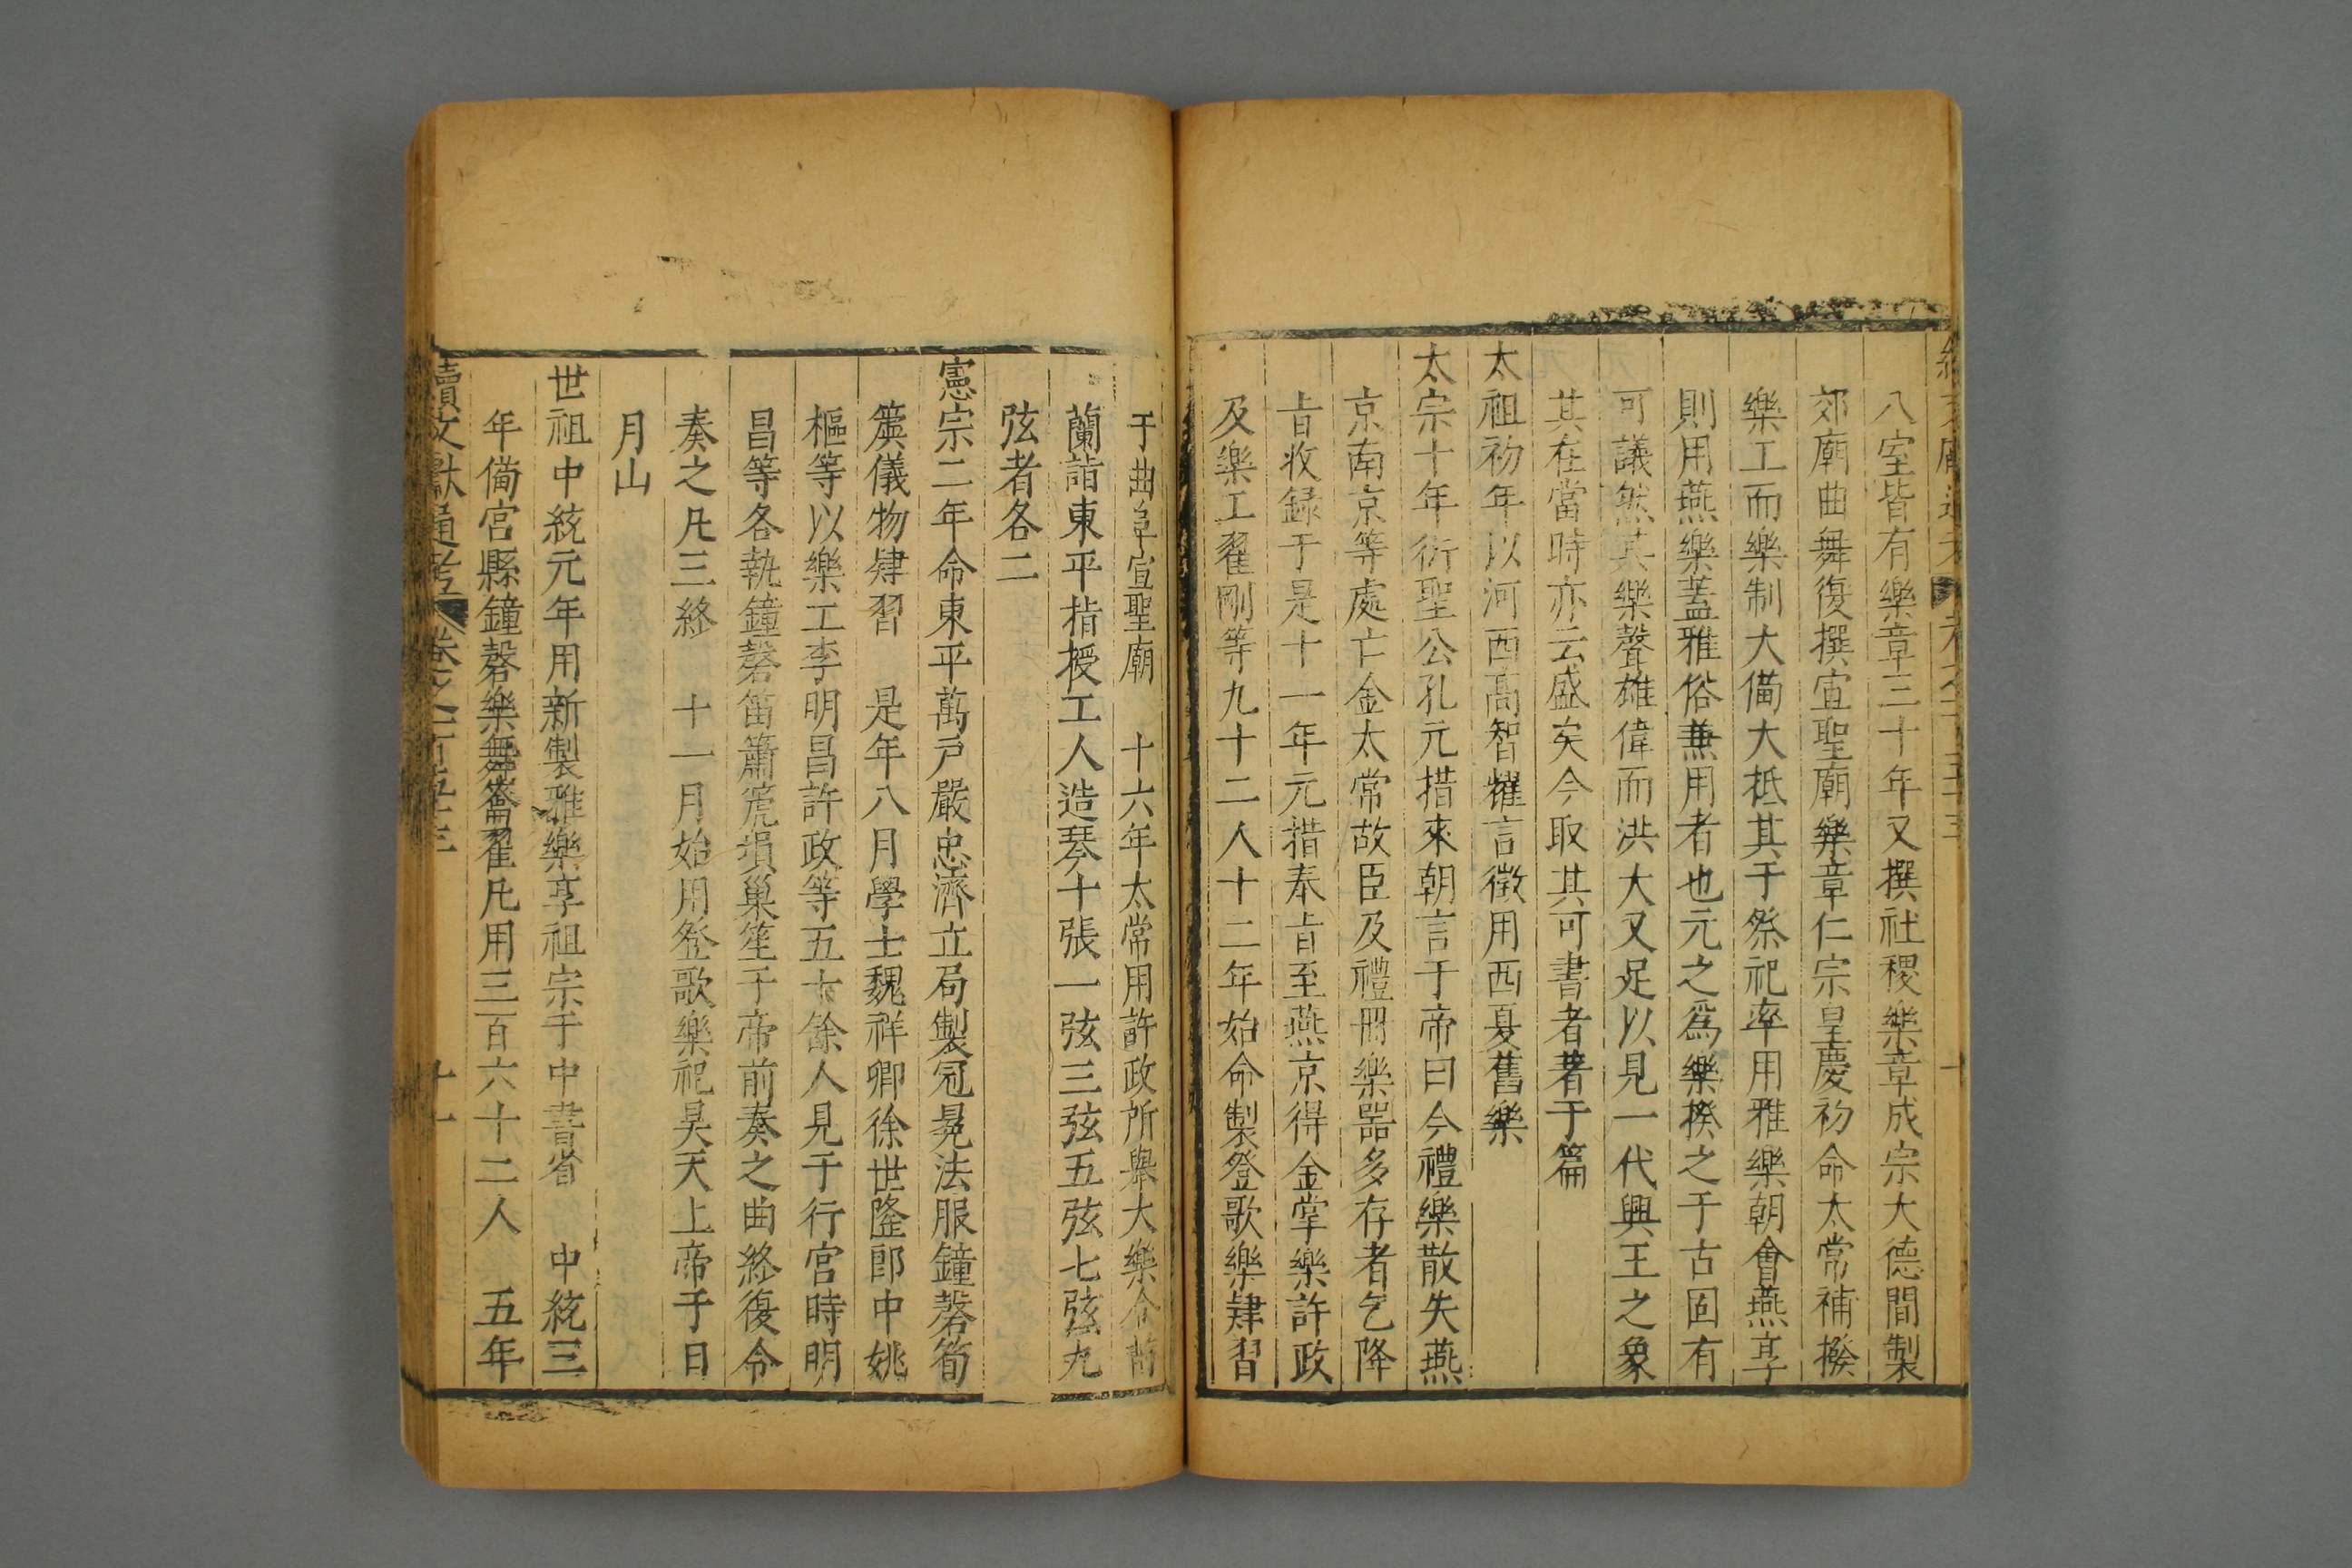 八室皆有樂章三十年又撰社稷樂章成宗大德間製
郊廟曲舞復撰宣聖廟樂章仁宗皇慶初命太常補撥
樂工而樂制大備大抵其于祭祀率用雅樂朝會燕享
則用燕樂蓋雅俗兼用者也元之爲樂揆之于古固有
可議然其樂聲雄偉而洪大又足以見一代興王之象
其在當時亦云盛矣今取其可書者著于篇
太祖初年以河西高智耀言徵用西夏舊樂
太宗十年衍聖公孔元措來朝言于帝曰今禮樂散失燕
京南京等處亡金太常故臣及禮冊樂噐多存者乞降
旨收録于是十一年元措奉旨至燕京得金掌樂許政
及樂工翟剛等九十二人十二年始命製登歌樂肄習
于曲阜宣聖廟　十六年太常用許政所舉大樂令苗
蘭詣東平指授工人造琴十張一弦三弦五弦七弦九
弦者各二
憲宗二年命東平萬戶嚴忠濟立局製冠冕法服鐘磬筍
簴儀物肄習　是年八月學士魏祥卿徐世隆郎中姚
樞等以樂工李明昌許政等五十餘人見于行宮時明
昌等各執鐘磬笛簫箎塤巢笙于帝前奏之曲終復令
奏之凡三終　十一月始用登歌樂祀昊天上帝于日
月山
世祖中統元年用新製雅樂享祖宗于中書省　中統三
年備宮縣鐘磬樂舞籥翟凡用三百六十二人　五年
續文獻通考 卷之一百五十三 十一